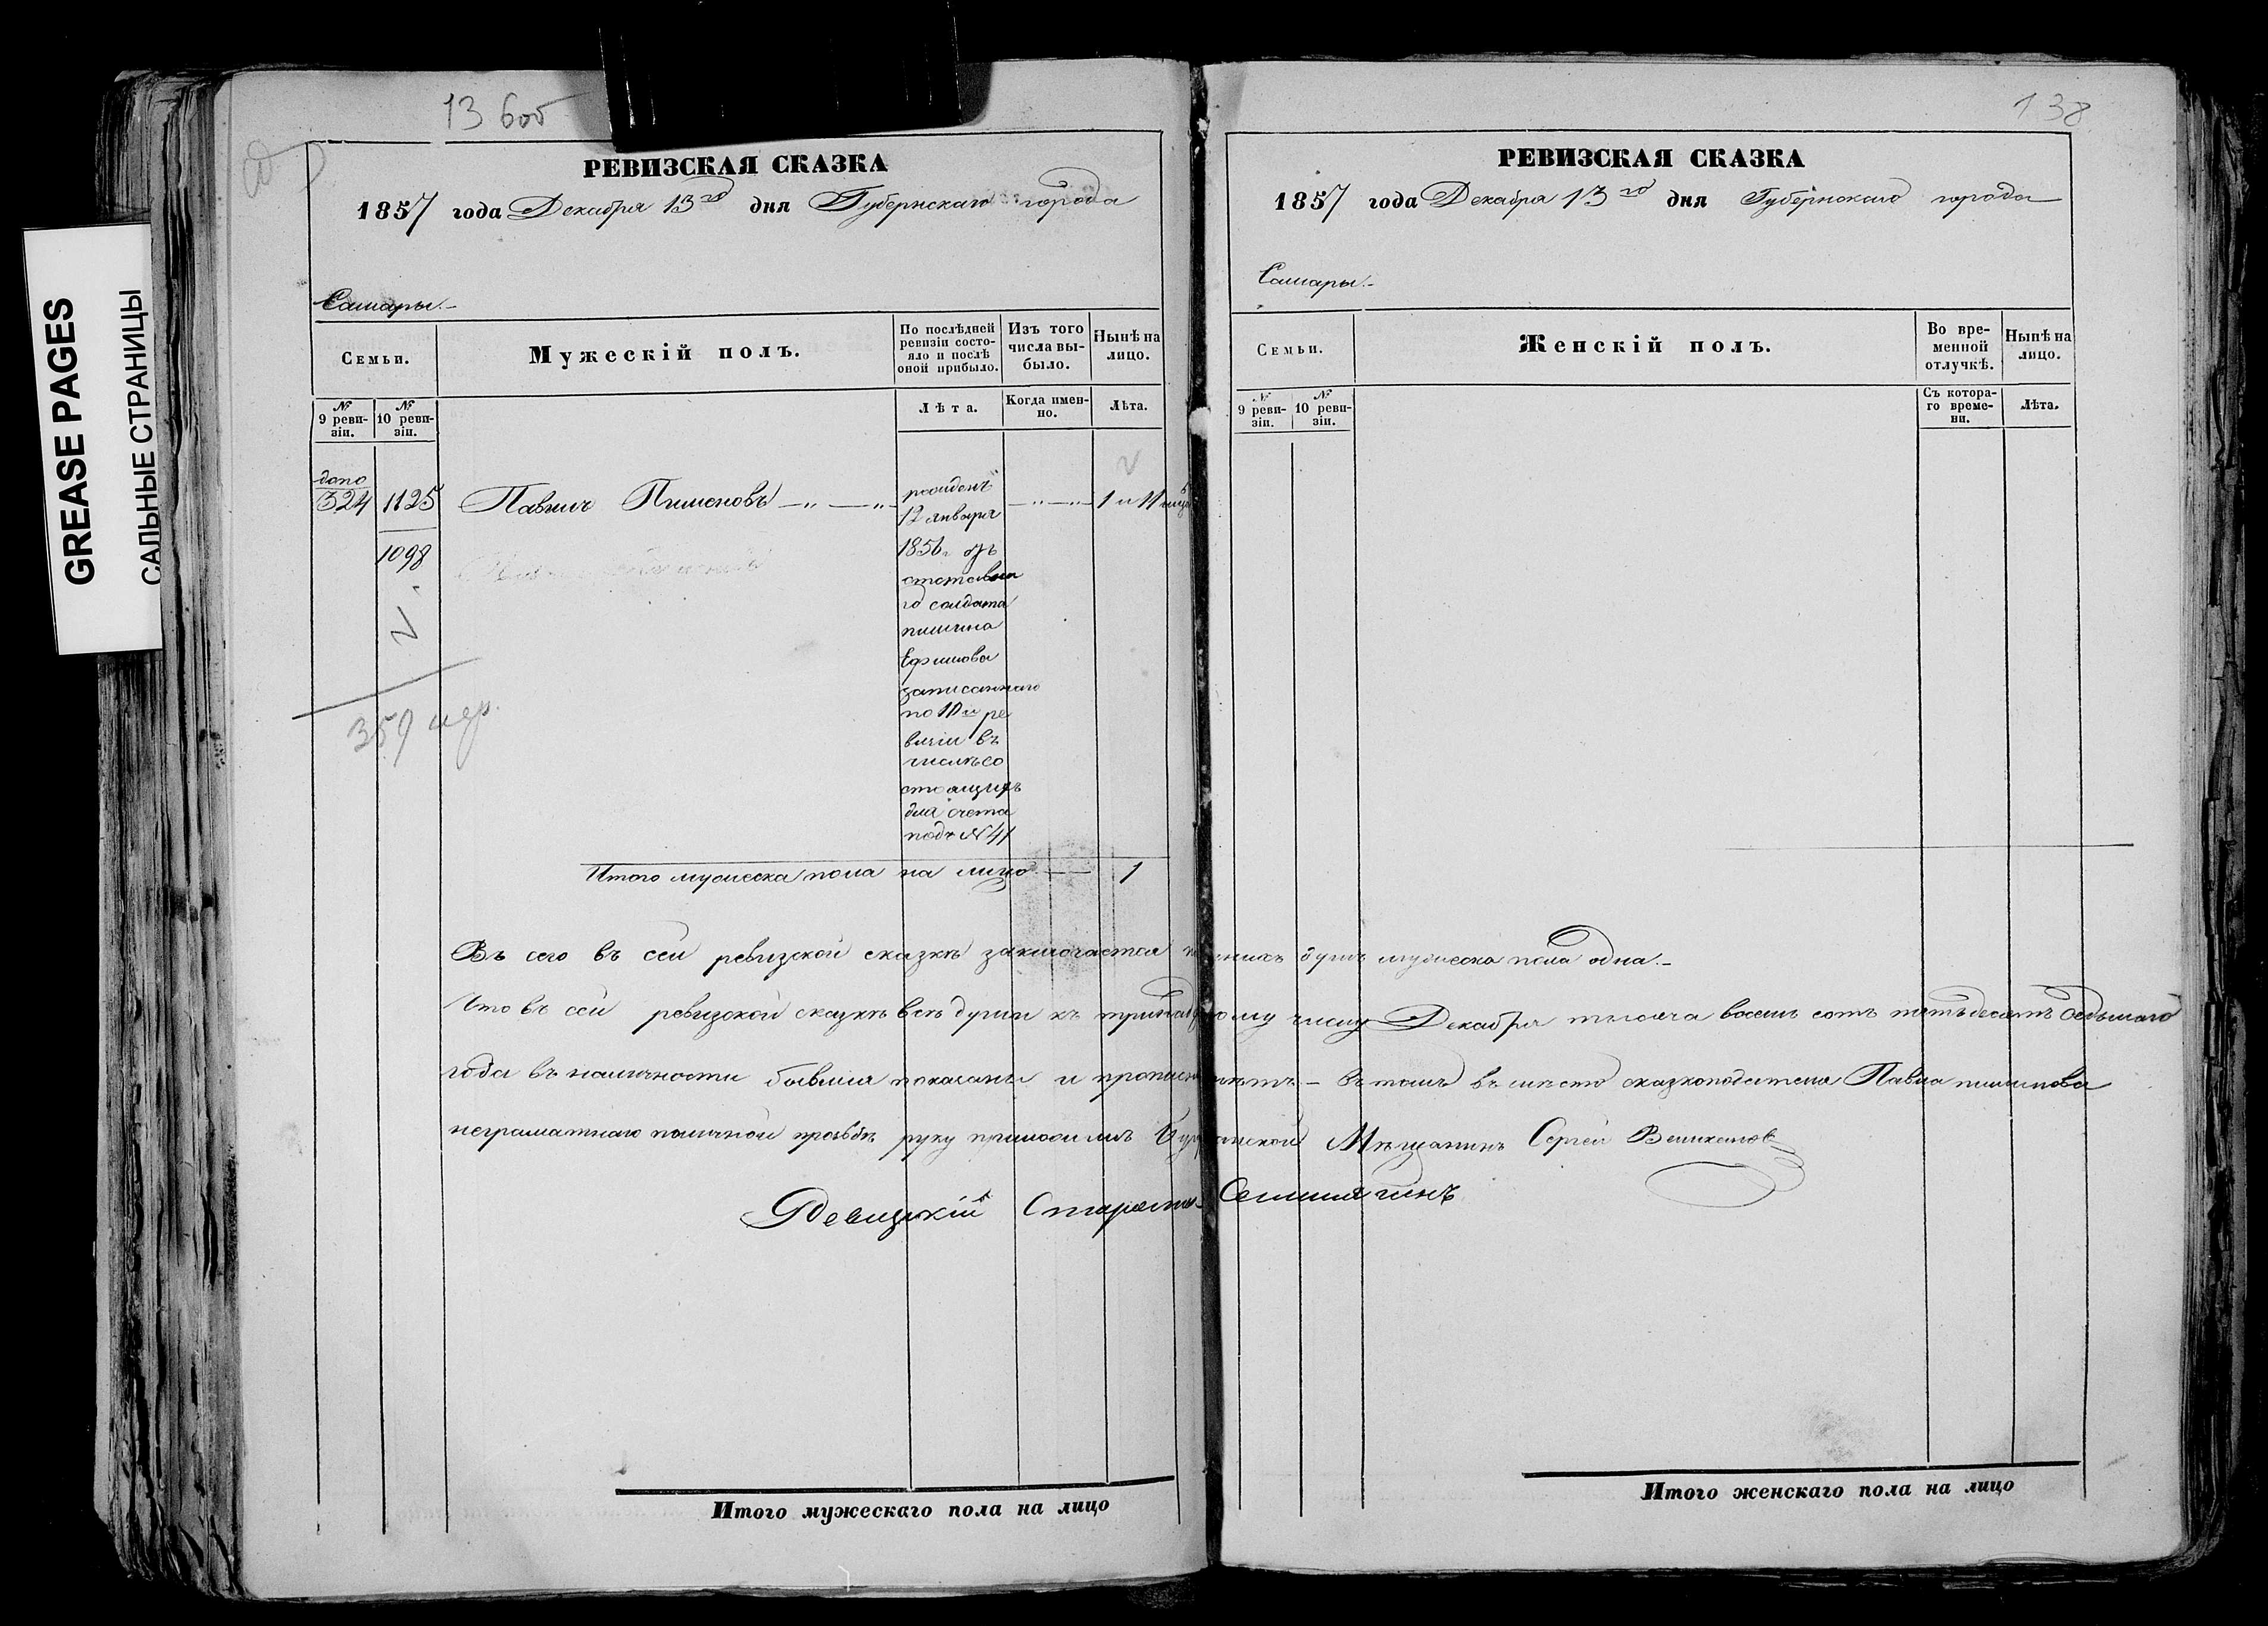 GREASE PAGES
САЛЬНЫЕ СТРАНИЦЫ
136об
РЕВИЗСКАЯ СКАЗКА
1857 года Декабря 13го дня Губернскаго города
Самары.-
Семьи.
Мужескій полъ.
По послѣдней ревизіи состояло и послѣ оной прибыло.
Изъ того числа выбыло.
Нынѣ на лицо.
№ 9 ревизіи.
№ 10 ревизіи.
Лѣта.
Когда именно.
Лѣта.
допо
324 1125 Павилъ Пименовъ —„—„— 1 и 11 мцъ
1098
рожденъ
12 января
1856 г. отъ
отставна
го солдата
пимина
Ефимова
записаннаго
по 10й ре
визіи въ
числѣ со
стоящихъ
для счета
подъ №41
359 мэр.
Итого мужеска пола на лицо — 1
138
РЕВИЗСКАЯ СКАЗКА
1857 года Декабря 13го дня Губернскаго города
Самары.-
Семьи.
Женскій полъ.
Во временной отлучкѣ.
Нынѣ на лицо.
№ 9 ревизіи.
№ 10 ревизіи.
Съ котораго времени.
Лѣта.
Въ сего въ сей ревизской сказкѣ заключается душъ мужеска пола одна.-
Что въ сей ревизской сказкѣ всѣ души къ числу Декабря тысяча восемь сотъ пятьдесятъ седьмаго
года въ наличности бывшія показаны и въ томъ въ мѣсто сказкоподателя Павла пименова
неграматнаго по личной прозьбѣ руку приложилъ Мѣщанинъ Сергей
Ревизскій Староста
Итого мужескаго пола на лицо
Итого женскаго пола на лицо